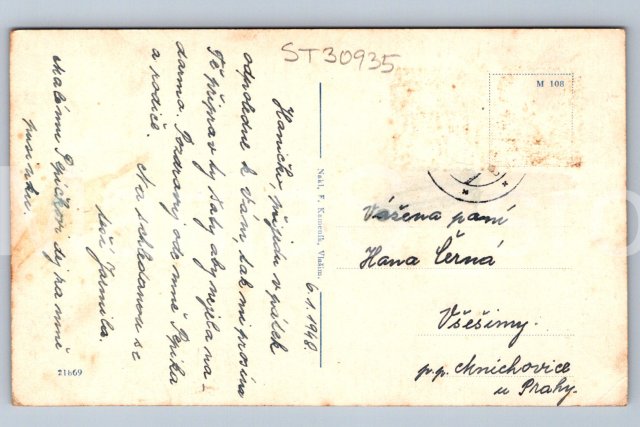 ST30935
M 108
Haničko, přijedu v pátek
odpoledne k Vám, tak mi prosím
Tě připrav ty šaty aby nejela na-
darmo. Pozdravuj ode mně Pepíka
a rodiče.
Na shledanou se
těší Jarmila.
Malému Pepíčkovi dej za mně
pusinku.
6.1.1948.
Nakl. F. Kameník, Vlašim.
Vážena paní
Hana Černá
Všešimy.
p.p. Mnichovice
u Prahy.
21869